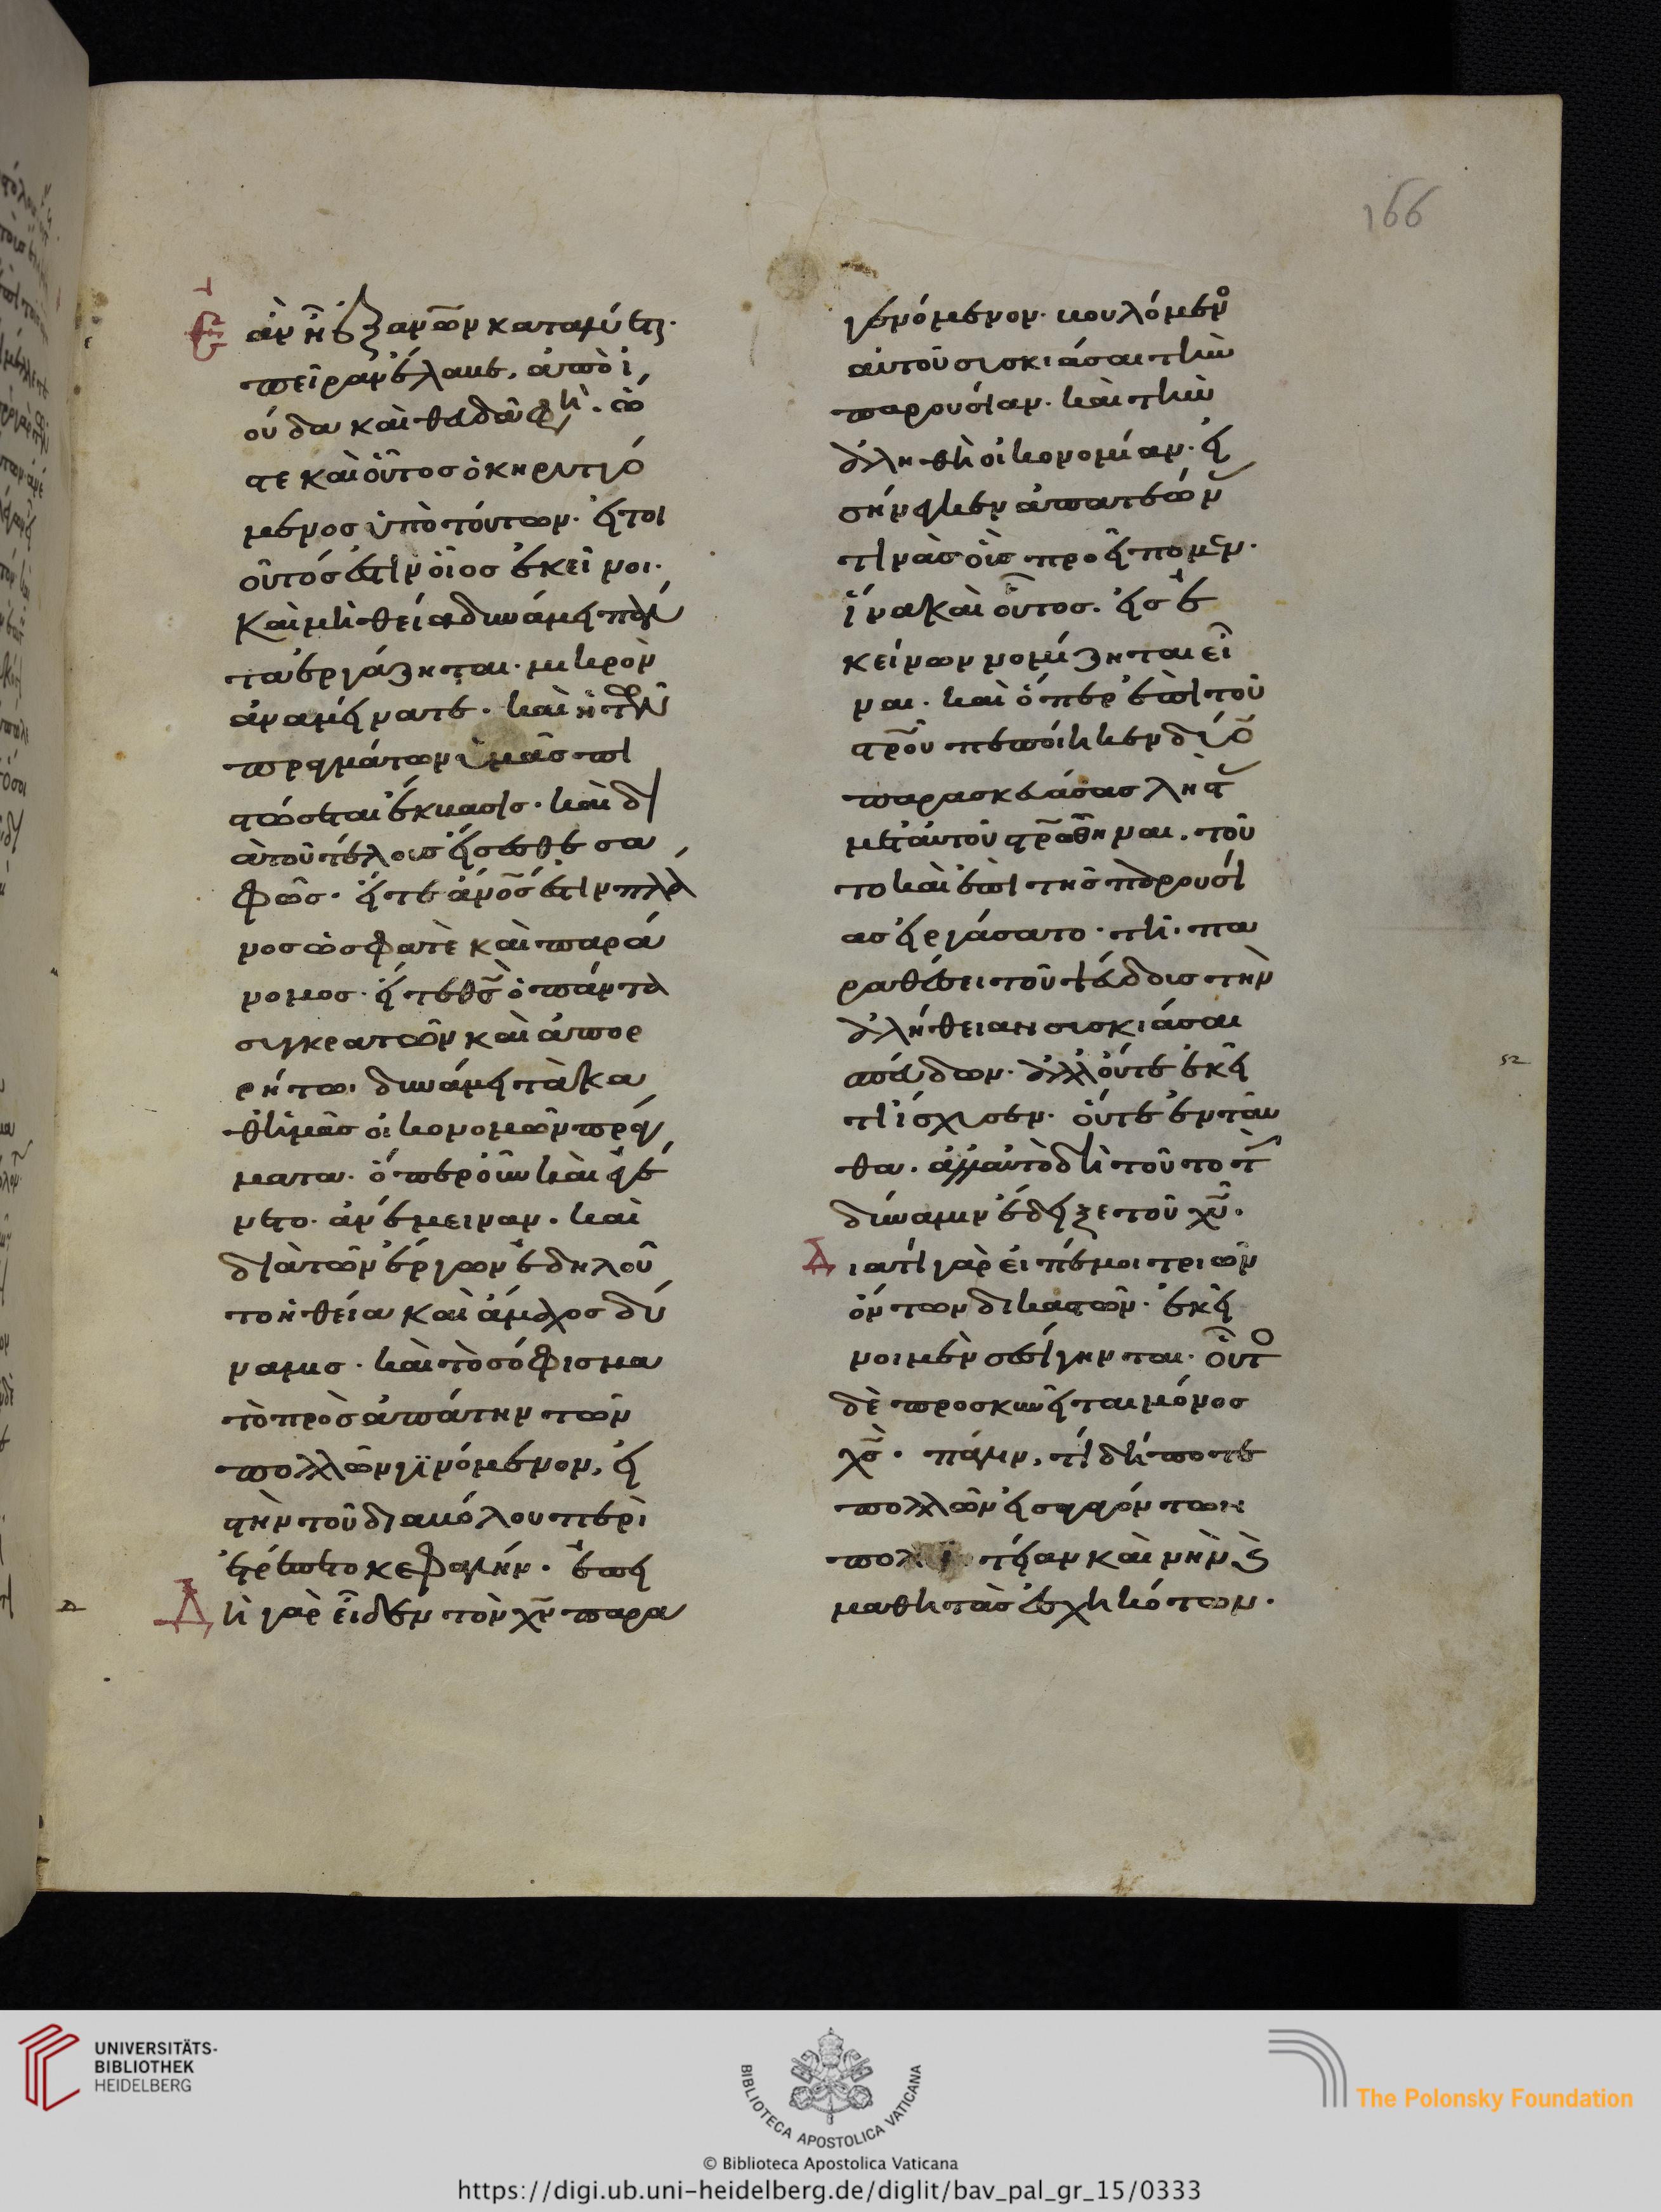 166
Ἐὰν ἢ ἐξ ἀνων καταλύετε·
πεῖραν ἔλαβε. ἀπὸ ἰ
ούδα καὶ θευδᾶ φη. ὥσ
τε καὶ οὗτος ὁ κηρυττό
μενος ὑπὸ τούτων. εἴ τοι
οὗτός ἐστιν οἷος ἐκεῖνοι.
καὶ μὴ θεία δυνάμει πάν
τα ἐργάζηται. μικρὸν
ἀναμείνατε. καὶ ἡ τῶν
πραγμάτων ὑμᾶς πι
στώσεται ἔκβασις. καὶ δι
ἀ τοῦ τέλους εἴσεσθε σα
φῶς. εἴτε ἄνος ἐστιν πλά
νος ὥς φατὲ καὶ παρά
νομος. εἴτε θς ὁ πάντα
συγκρατῶν καὶ ἀπορ
ρήτω δυνάμει τὰ κα
θ ἡμᾶς οἰκονομῶν πράγ
ματα. ὅπερ οὖν καὶ ἐγέ
νετο. ἀνέμειναν. καὶ
διὰ τῶν ἔργων ἐδηλοῦ
το ἡ θεία καὶ ἄμαχος δύ
ναμις. καὶ τὸ σόφισμα
τὸ πρὸς ἀπάτην τῶν
πολλῶν γινόμενον, εἰς
τὴν τοῦ διαβόλου περὶ
ετρέπετο κεφαλήν. ἐπει
Δὴ γὰρ εἶδεν τὸν χν παρα
γενόμενον. βουλόμενο
αὐτοῦ συσκιάσαι τὴν
παρουσίαν. καὶ τὴν
ἀληθῆ οἰκονομίαν. εἰ
σήνεγκεν ἀπατεῶν
τινὰς οὓς προείπομεν.
ἵνα καὶ οὗτος. εἷς ἐ
κείνων νομίζηται εἶ
ναι. καὶ ὅπερ ἐπὶ τοῦ
στρου πεποίηκεν δύο
παρασκευάσας λῃστ
μετ αὐτοῦ στρωθῆναι. τοῦ
το καὶ ἐπὶ τῆς παρουσί
ας εἰργάσατο. τῆ πα
ραθέσει τοῦ ψεύδους τὴν
ἀλήθειαν συσκιάσαι
σπεύδων. ἀλλ οὔτε ἐκεῖ
τι ἴσχυσεν. οὔτε ἐνταῦ
θα. ἀλλ αὐτὸ δὴ τοῦτο τ
δύναμιν ἔδειξε τοῦ χυ.
Διατί γὰρ εἰπέ μοι τριῶν
ὄντων δικαστῶν. ἐκεῖ
νοι μὲν σεσίγηνται. οὗτο
δὲ προσκυνεῖται μόνος
χς. πάλιν, τί δήποτε
πολλῶν εἰσφρόντων
πολ τείαν καὶ μὴν ὲ
μαθητὰς ἐσχηκότων.
UNIVERSITÄTS-
BIBLIOTHEK
HEIDELBERG
BIBLIOTECA APOSTOLICA VATICANA
The Polonsky Foundation
© Biblioteca Apostolica Vaticana
https://digi.ub.uni-heidelberg.de/diglit/bav_pal_gr_15/0333